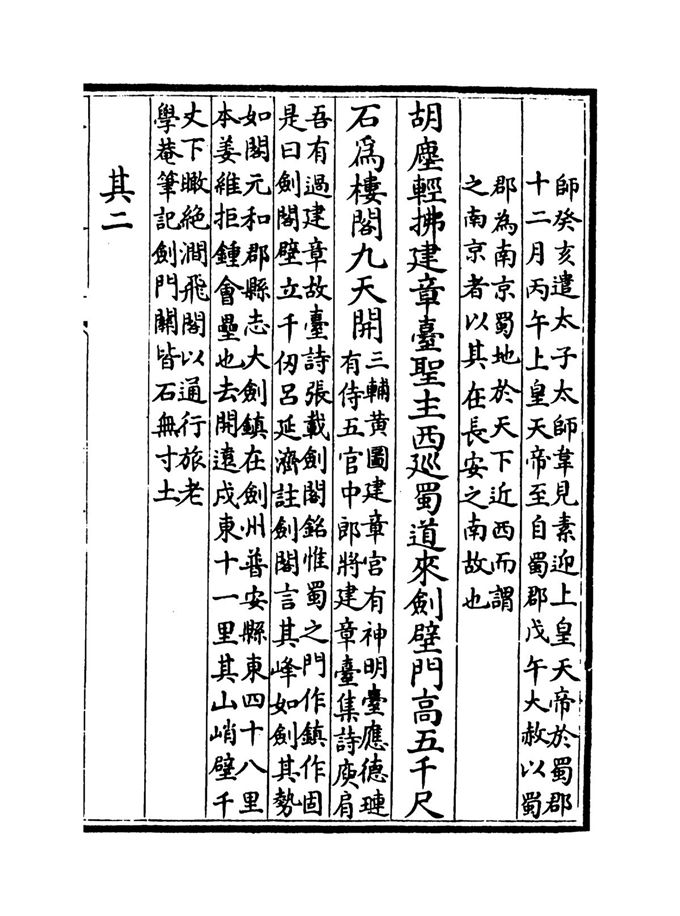 師癸亥遣太子太師韋見素迎上皇天帝於蜀郡
十二月丙午上皇天帝至自蜀郡戊午大赦以蜀
郡為南京蜀地於天下近西而謂
之南京者以其在長安之南故也
胡塵輕拂建章臺聖主西廵蜀道來劍壁門高五千尺
石爲樓閣九天開三輔黄圖建章宮有神明臺應德璉
有侍五官中郎將建章臺集詩庾肩
吾有過建章故臺詩張載劍閣銘惟蜀之門作鎮作固
是曰劍閣壁立千仞呂延濟註劍閣言其峰如劍其勢
如閣元和郡縣志大劍鎮在劍州普安縣東四十八里
本姜維拒鍾會壘也去開遠戍東十一里其山峭壁千
丈下瞰絶澗飛閣以通行旅老
學菴筆記劍門關皆石無寸土
其二